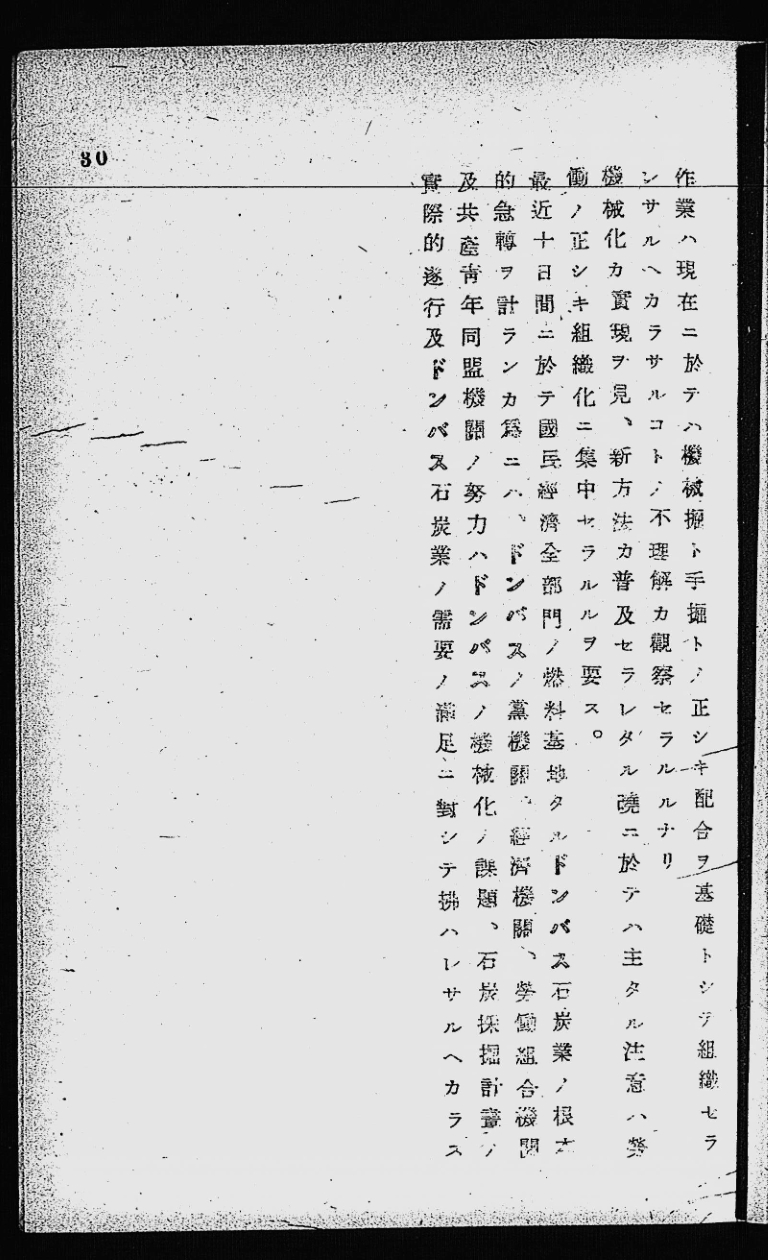 作業ハ現在ニ於テハ機械掘ト手掘トノ正シキ配合ヲ基礎トシテ組織セラ
ンサルヘカラサルコトノ不理解カ觀察セラルルナリ
機械化カ實現ヲ見、新方法カ普及セラレタル礦ニ於テハ主タル注意ハ勞
働ノ正シキ組織化ニ集中セラルルヲ要ス。
最近十日間ニ於テ國民經濟全部門ノ燃料基地タルドンバス石炭業ノ根本
的急轉ヲ計ランカ爲ニハ、ドンバスノ黨機關、經濟機關、勞働組合機關
及共產靑年同盟機關ノ努力ハドンバスノ機械化ノ課題、石炭採掘計畫ノ
實際的遂行及ドンバス石炭業ノ需要ノ滿足ニ對シテ拂ハレサルヘカラス
30